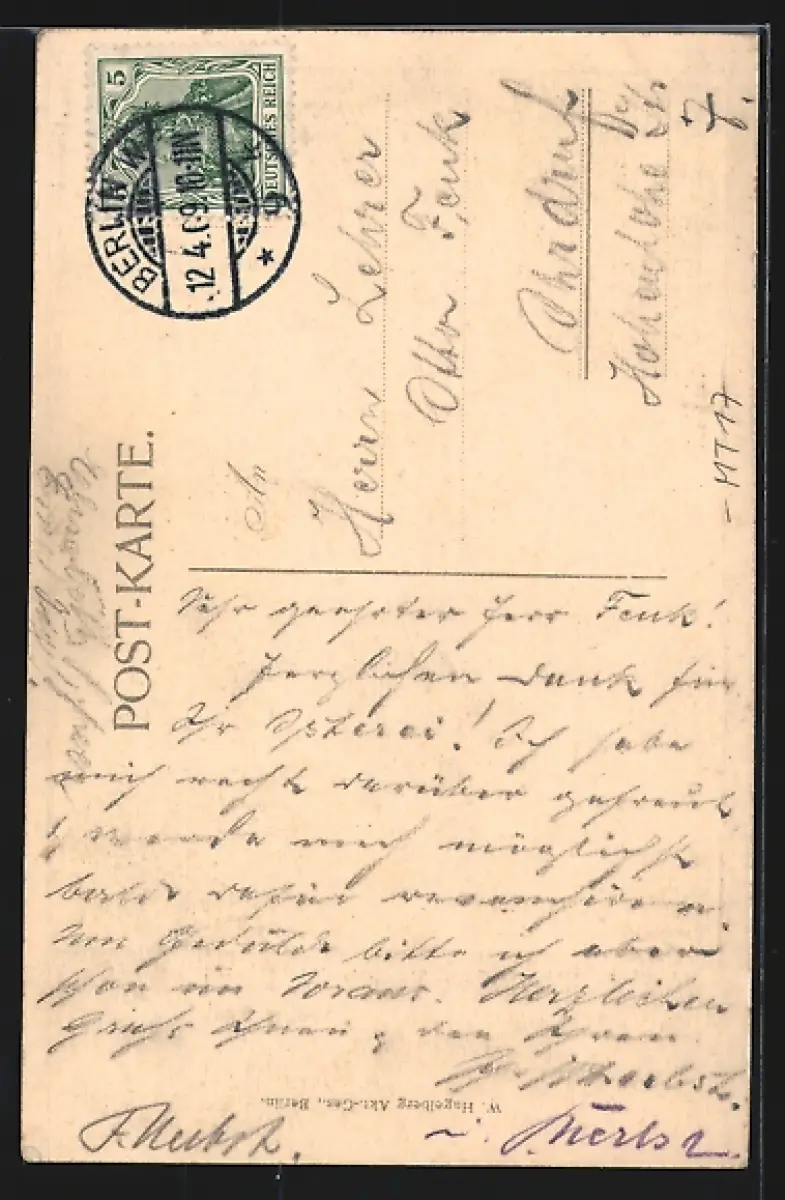 5
DEUTSCHES REICH
BERLIN W.
12.4.09.10-11N.
POST-KARTE.
An
Herrn Lehrer
Otto Fenk
Ohrdruf
Hohenlohe Str
7.
-MT17
Sehr geehrter Herr Fenk!
Herzlichen Dank für
Ihr Osterei! Ich habe
mich recht darüber gefreut
& werde mich möglichst
bald dafür revanchieren.
Um Geduld bitte ich aber
schon im Voraus. Herzlichen
Gruß Ihnen & den Ihren
W. Hagelberg Akt.-Ges., Berlin.